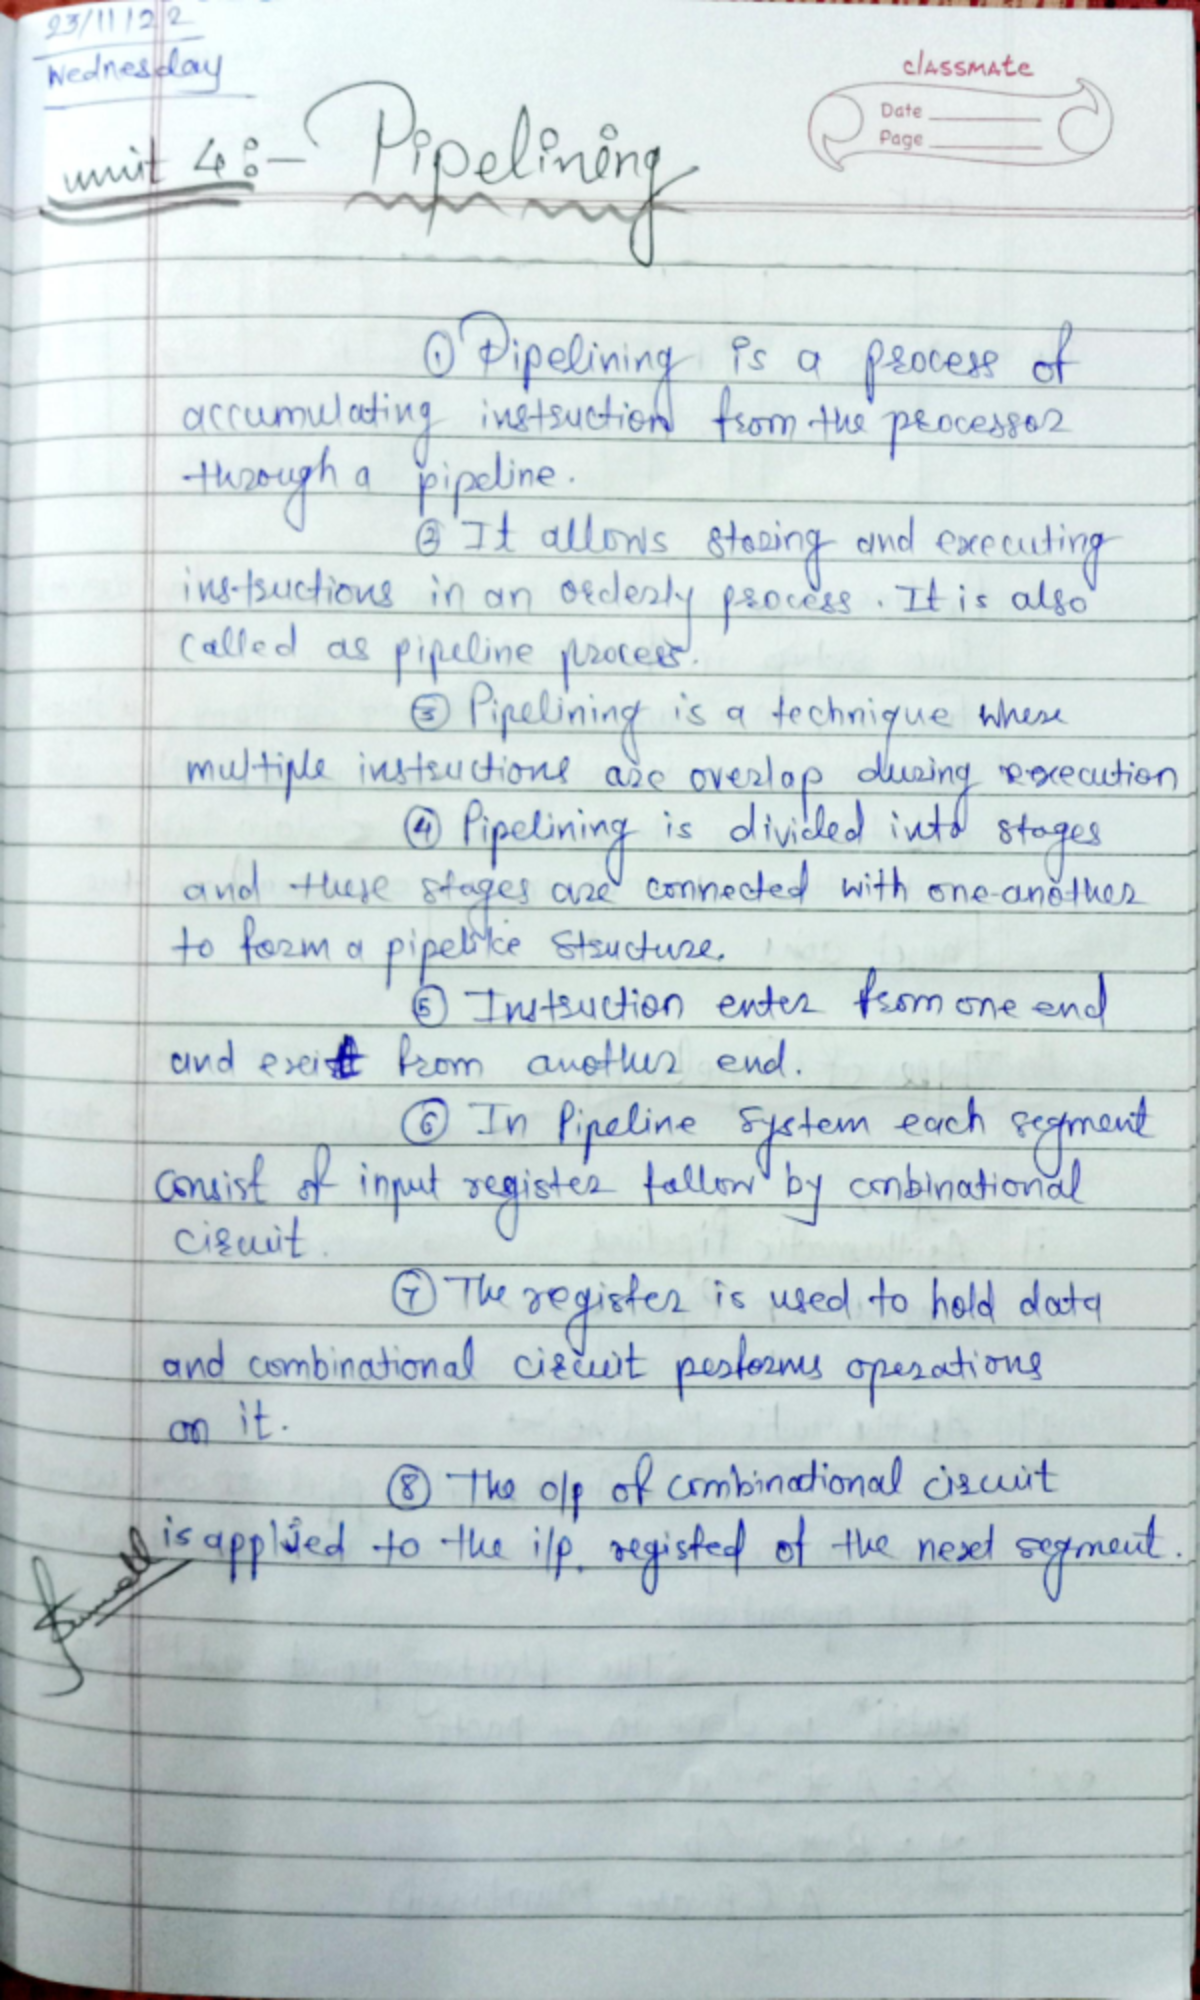 23/11/22
Wednesday
classmate
Date
Page
unit 4:- Pipelining
① Pipelining is a process of
accumulating instruction from the processor
through a pipeline.
② It allows storing and executing
instructions in an orderly process. It is also
called as pipeline process.
③ Pipelining is a technique where
multiple instructions are overlap during execution
④ Pipelining is divided into stages
and these stages are connected with one-another
to form a pipelike structure.
⑤ Instruction enter from one end
and exit from another end.
⑥ In Pipeline System each segment
consist of input register follow by conbinational
circuit.
⑦ The register is used to hold data
and combinational circuit performs operations
on it.
⑧ The o/p of combinational circuit
is applied to the i/p. registed of the next segment.